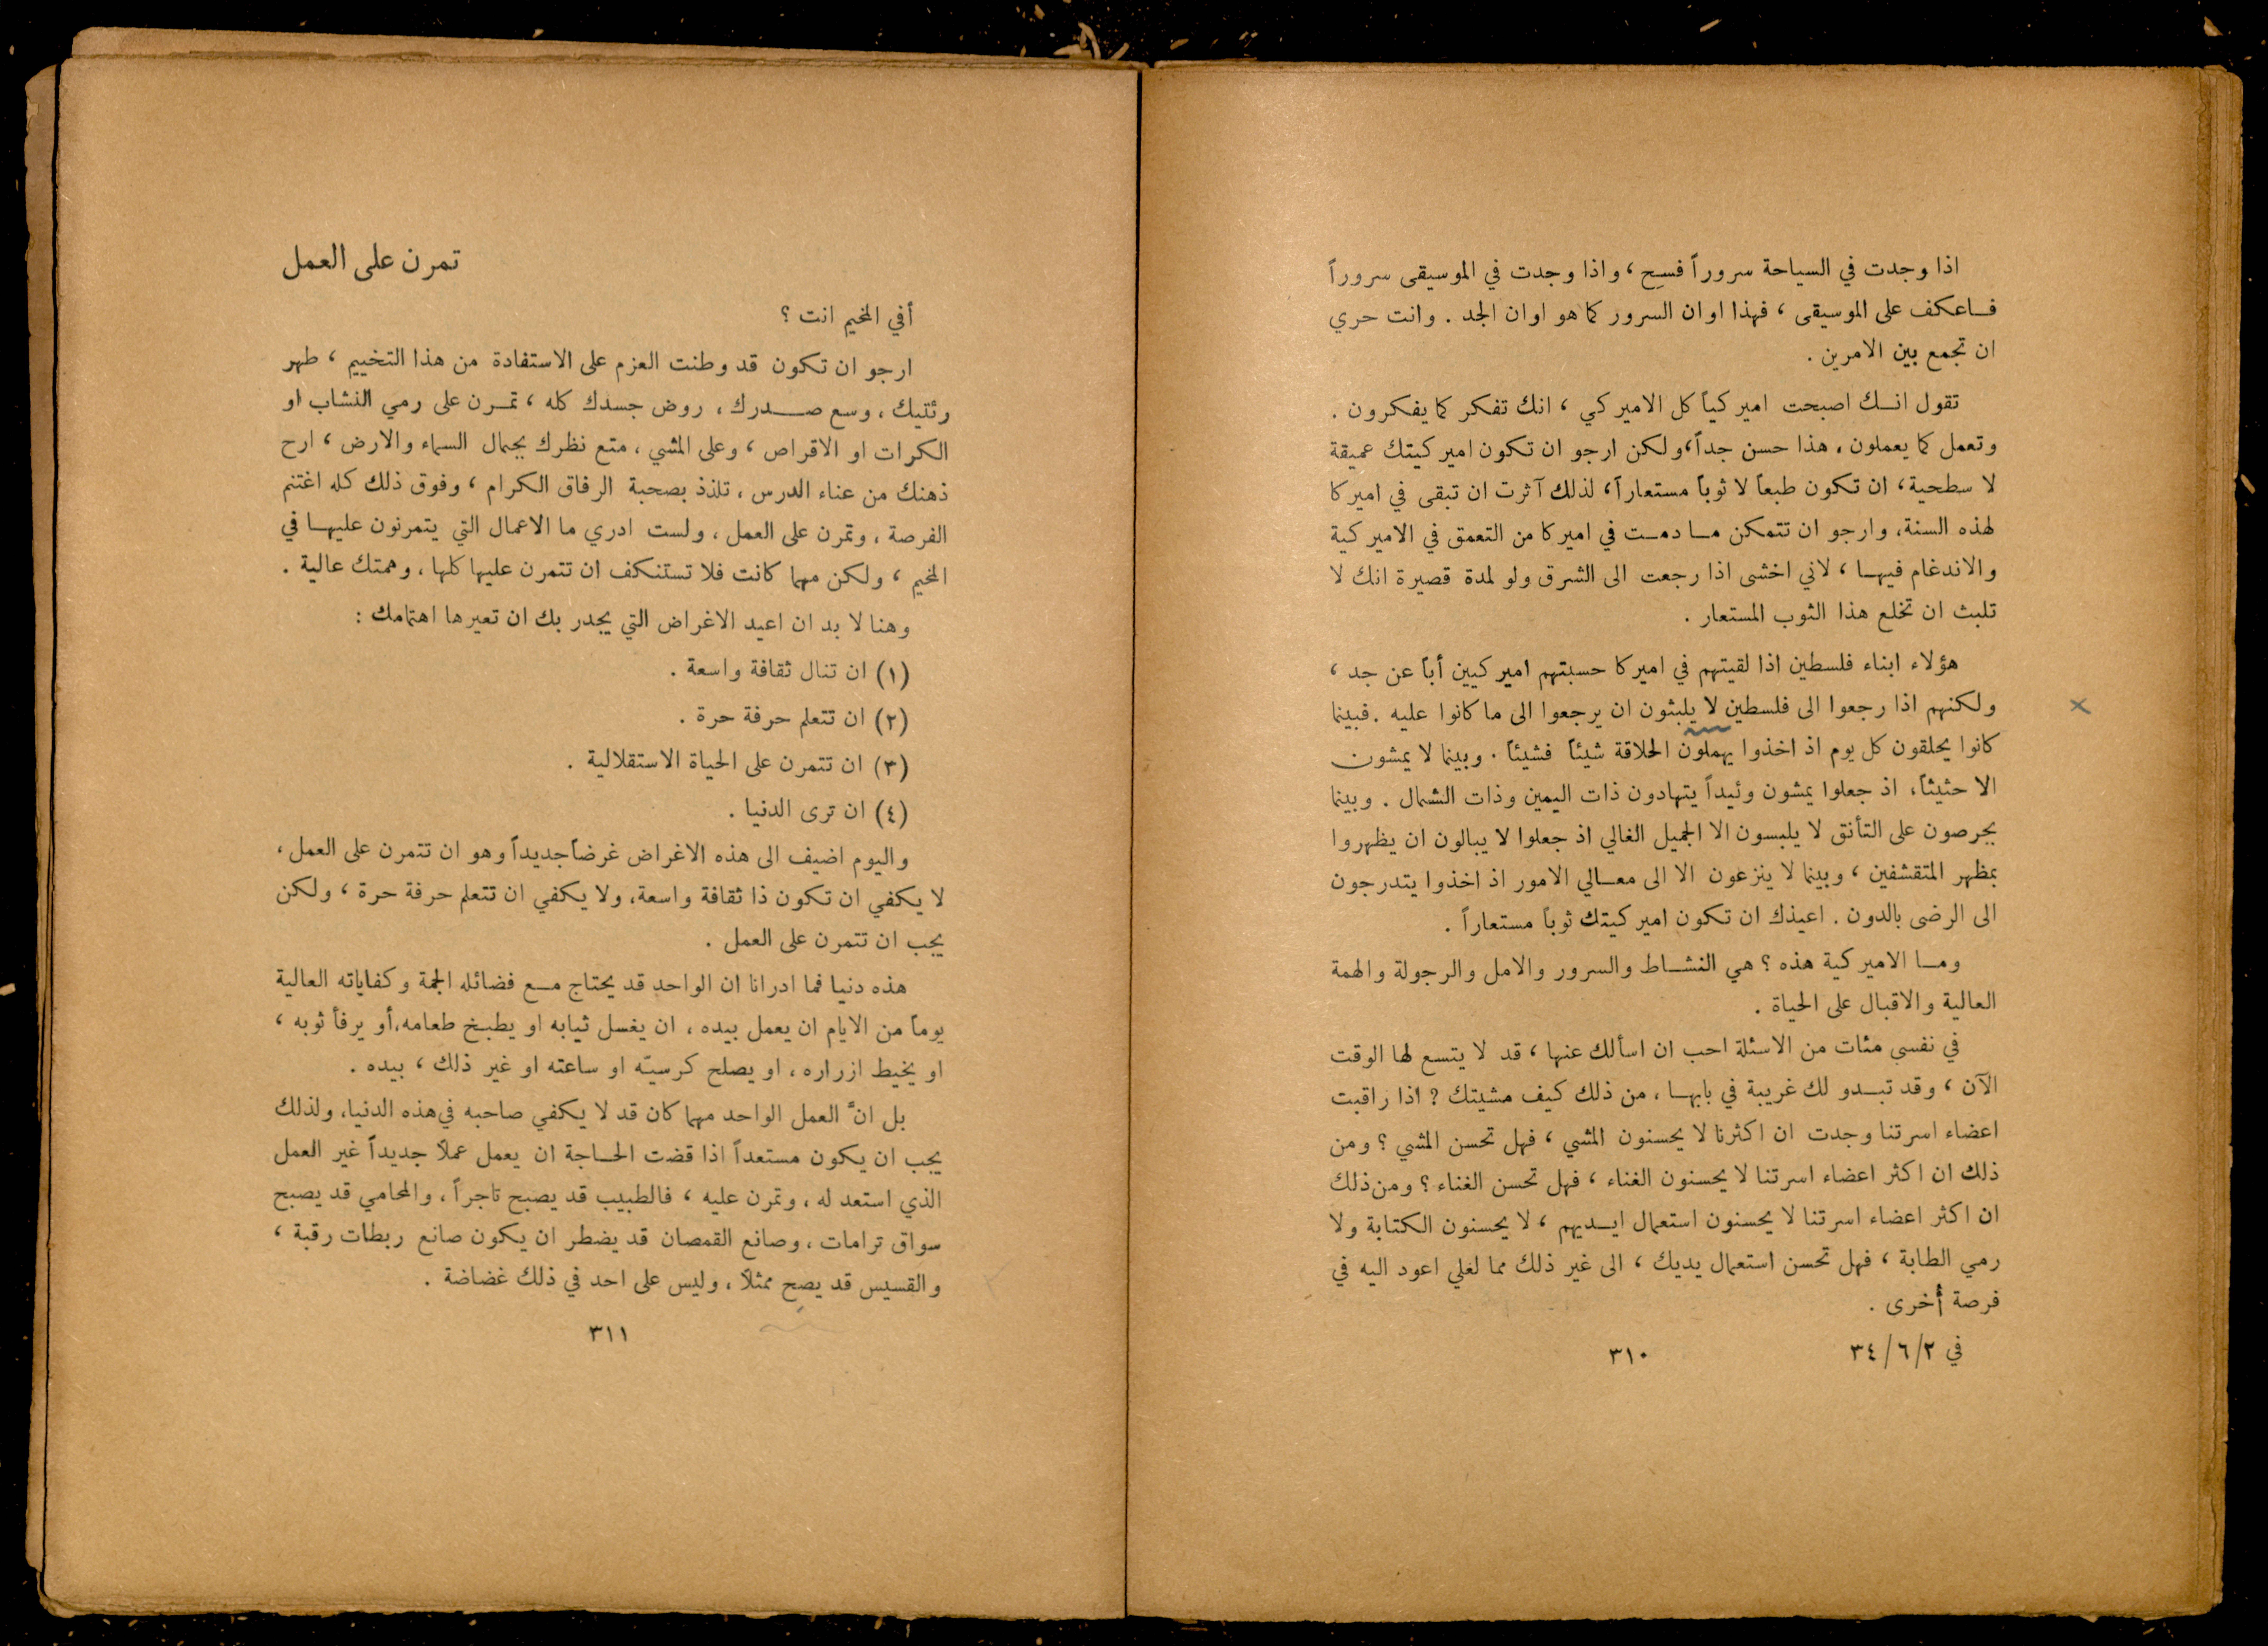 اذا وجدت في السياحة سروراً فسِح ، واذا وجدت في الموسيقى سروراً
فاعكف على الموسيقى ، فهذا اوان السرور كما هو اوان الجد . وانت حري
ان تجمع بين الامرين .
تقول انك اصبحت اميركياً كل الاميركي ، انك تفكر كما يفكرون .
وتعمل كما يعملون . هذا حسن جداً، ولكن ارجو ان تكون اميركيتك عميقة
لا سطحية ، ان تكون طبعاً لا ثوباً مستعاراً ، لذلك آثرت ان تبقى في اميركا
لهذه السنة ، وارجو ان تتمكن ما دمت في اميركا من التعمق في الاميركية
والاندغام فيها ، لاني اخشى اذا رجعت الى الشرق ولو لمدة قصيرة انك لا
تلبث ان تخلع هذا الثوب المستعار .
هؤلاء ابناء فلسطين اذا لقيتهم في اميركا حسبتهم اميركيين أباً عن جد ،
ولكنهم اذا رجعوا الى فلسطين لا يلبثون ان يرجعوا الى ما كانوا عليه . فبينما
كانوا يحلقون كل يوم اذ اخذوا يهملون الحلاقة شيئاً فشيئاً . وبينما لا يمشون
الا حثيثاً ، اذ جعلوا يمشون وئيداً يتهادون ذات اليمين وذات الشمال . وبينما
يحرصون على التأنق لا يلبسون الا الجميل الغالي اذ جعلوا لا يبالون ان يظهروا
بمظهر المتقشفين ، وبينما لا ينزعون الا الى معالي الامور اذ اخذوا يتدرجون
الى الرضى بالدون . اعيذك ان تكون اميركيتك ثوباً مستعاراً .
وما الاميركية هذه ؟ هي النشاط والسرور والامل والرجولة والهمة
العالية والاقبال على الحياة .
في نفسي مئات من الاسئلة احب ان اسألك عنها ، قد لا يتسع لها الوقت
الآن ، وقد تبدو لك غريبة في بابها ، من ذلك كيف مشيتك ؟ اذا راقبت
اعضاء اسرتنا وجدت ان اكثرنا لا يحسنون المشي ، فهل تحسن المشي ؟ ومن
ذلك ان اكثر اعضاء اسرتنا لا يحسنون الغناء ، فهل تحسن الغناء ؟ ومن ذلك
ان اكثر اعضاء اسرتنا لا يحسنون استعمال ايديهم ، لا يحسنون الكتابة ولا
رمي الطابة ، فهل تحسن استعمال يديك ، الى غير ذلك مما لغلي اعود اليه في
فرصة أخرى .
في ٣٤/٦/٢
٣١٠
تمرن على العمل
أفي المخيم انت ؟
ارجو ان تكون قد وطنت العزم على الاستفادة من هذا التخييم ، طهر
رئتيك ، وسع صدرك ، روض جسدك كله ، تمرن على رمي النشاب او
الكرات او الاقراص ، وعلى المشي ، متع نظرك بجمال السماء والارض ، ارح
ذهنك من عناء الدرس ، تلذذ بصحبة الرفاق الكرام ، وفوق ذلك كله اغتنم
الفرصة ، وتمرن على العمل ، ولست ادري ما الاعمال التي يتمرنون عليها في
المخيم ، ولكن مهما كانت فلا تستنكف ان تتمرن عليها كلها ، وهمتك عالية .
وهنا لا بد ان اعيد الاغراض التي يجدر بك ان تعيرها اهتمامك :
(١) ان تنال ثقافة واسعة .
(٢) ان تتعلم حرفة حرة .
(٣) ان تتمرن على الحياة الاستقلالية .
(٤) ان ترى الدنيا .
واليوم اضيف الى هذه الاغراض غرضاً جديداً وهو ان تتمرن على العمل ،
لا يكفي ان تكون ذا ثقافة واسعة ، ولا يكفي ان تتعلم حرفة حرة ، ولكن
يجب ان تتمرن على العمل .
هذه دنيا فما ادرانا ان الواحد قد يحتاج مع فضائله الجمة وكفاياته العالية
يوماً من الايام ان يعمل بيده ، ان يغسل ثيابه او يطبخ طعامه ، أو يرفأ ثوبه ،
او يخيط ازراره ، او يصلح كرسيّه او ساعته او غير ذلك ، بيده .
بل انَّ العمل الواحد مهما كان قد لا يكفي صاحبه في هذه الدنيا ، ولذلك
يجب ان يكون مستعداً اذا قضت الحاجة ان يعمل عملاً جديداً غير العمل
الذي استعد له ، وتمرن عليه ، فالطبيب قد يصبح تاجراً ، والمحامي قد يصبح
سواق ترامات ، وصانع القمصان قد يضطر ان يكون صانع ربطات رقبة ،
والقسيس قد يصح ممثلاً ، وليس على احد في ذلك غضاضة .
٣١١